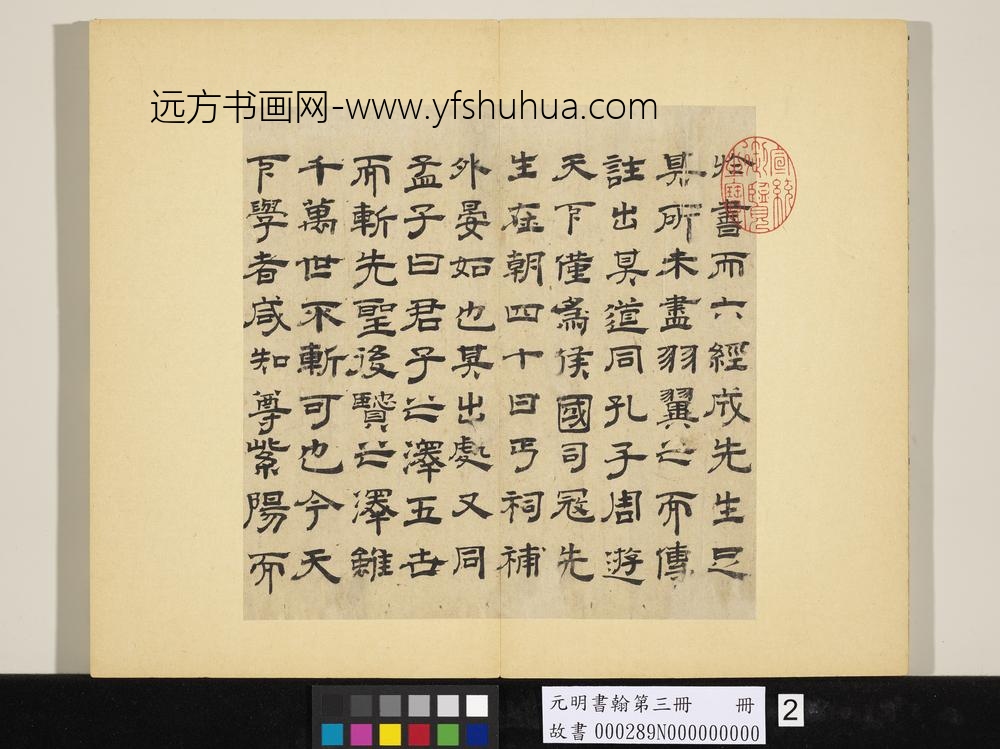 远方书画网-www.yfshuhua.com
於書而六經成先生足
其所未盡羽翼之而傳
註出其道同孔子周遊
天下僅為侯國司寇先
生在朝四十日丐祠補
外晏如也其出處又同
孟子曰君子之澤五世
而斬先聖後賢之澤雖
千萬世不斬可也今天
下學者咸知尊紫陽而
宣統御覽之寶
元明書翰第三冊 冊
故書 000289N000000000
2